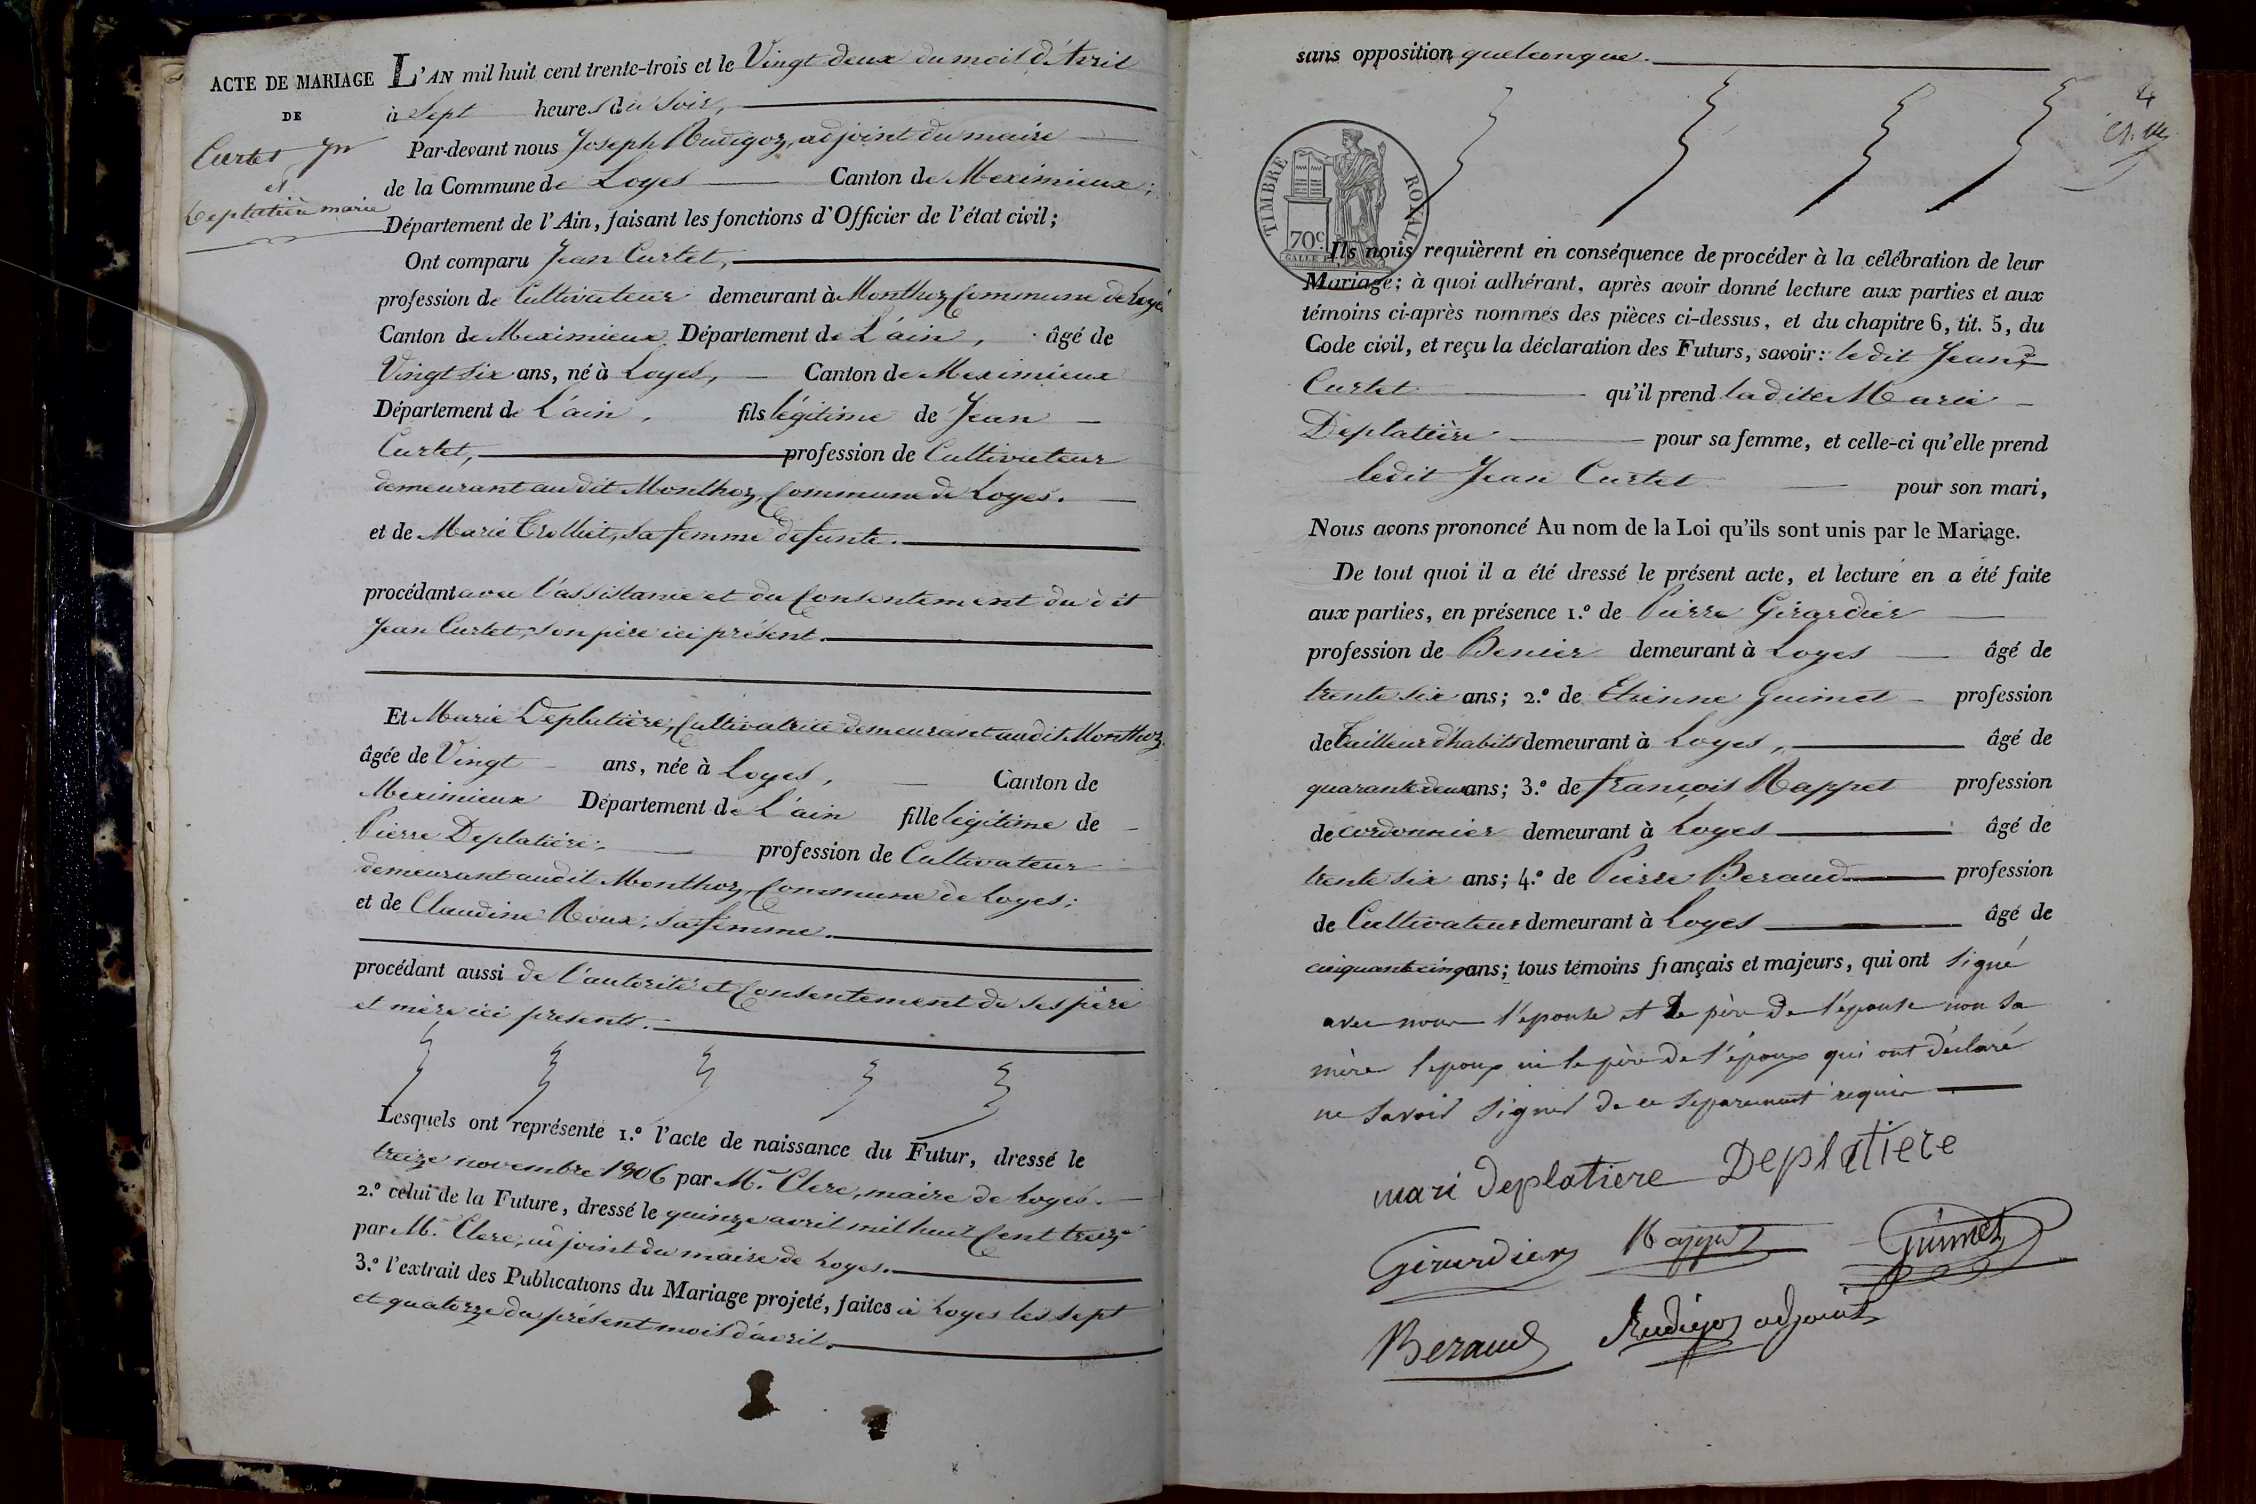 ACTE DE MARIAGE
DE
Curtet Jn
et
Deplatière marie
L'AN mil huit cent trente-trois et le Vingt deux du mois d'Avril
à Sept heures du Soir,
Par-devant nous Joseph Rudigoz, adjoint du maire
de la Commune de Loyes Canton de Meximieux;
Département de l'Ain, faisant les fonctions d'Officier de l'état civil;
Ont comparu Jean Curtet,
profession de Cultivateur demeurant à Monthoz Commune de Loyes
Canton de Meximieux Département de L'ain, âgé de
Vingt six ans, né à Loyes, Canton de Meximieux
Département de L'ain, fils légitime de Jean
Curtet, profession de Cultivateur
demeurant au dit Monthoz, Commune de Loyes.
et de Marie Trolliet, sa femme défunte.
procédant avec l'assistance et du Consentement du dit
Jean Curtet, son père ici présent.
Et Marie Deplatière, Cultivatrice demeurant audit Monthoz
âgée de Vingt ans, née à Loyes, Canton de
Meximieux Département de L'ain fille légitime de
Pierre Deplatière, profession de Cultivateur
demeurant audit Monthoz, Commune de Loyes;
et de Claudine Roux, sa femme.
procédant aussi de l'autorité et Consentement de ses père
et mère ici présents.
Lesquels ont représenté 1.º l'acte de naissance du Futur, dressé le
treize novembre 1806 par M. Clerc, maire de Loyes.
2.º celui de la Future, dressé le quinze avril mil huit Cent treize
par M. Clerc, adjoint du maire de Loyes.
3.º l'extrait des Publications du Mariage projeté, faites à Loyes les sept
et quatorze du présent mois d'avril.
sans opposition quelconque.
4
TIMBRE ROYAL
70 C.
Ils nous requièrent en conséquence de procéder à la célébration de leur
Mariage; à quoi adhérant, après avoir donné lecture aux parties et aux
témoins ci-après nommés des pièces ci-dessus, et du chapitre 6, tit. 5, du
Code civil, et reçu la déclaration des Futurs, savoir: le dit Jean
Curtet qu'il prend la dite Marie
Deplatière pour sa femme, et celle-ci qu'elle prend
ledit Jean Curtet pour son mari,
Nous avons prononcé Au nom de la Loi qu'ils sont unis par le Mariage.
De tout quoi il a été dressé le présent acte, et lecture en a été faite
aux parties, en présence 1.º de Pierre Girardier
profession de Benier demeurant à Loyes âgé de
trente six ans; 2.º de Etienne Guimet profession
de Tailleur d'habits demeurant à Loyes, âgé de
quarante deux ans; 3.º de françois Rappet profession
de cordonnier demeurant à Loyes âgé de
trente six ans; 4.º de Pierre Beraud profession
de Cultivateur demeurant à Loyes âgé de
cinquante cinq ans; tous témoins français et majeurs, qui ont signé
avec nous l'epouse et le père de l'épouse non sa
mère lepoux ni le père de l'époux qui ont déclaré
ne savoir signer de ce séparément requis
mari deplatiere Deplatiere
Girardier Rappet Guimet
Beraud Rudigoz adjoint